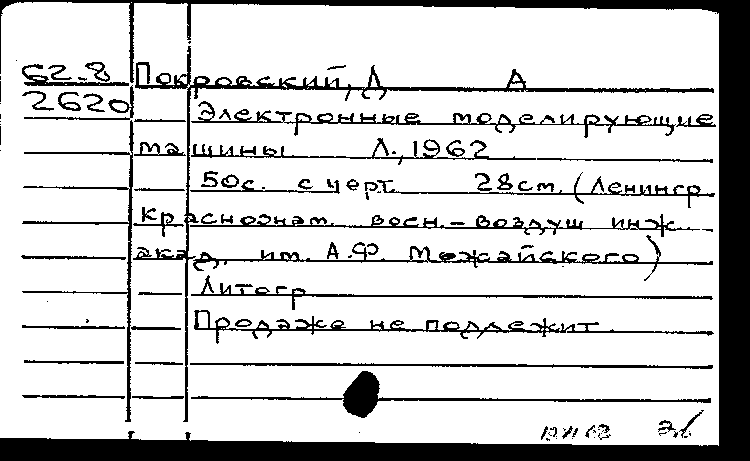 62-8 Покровский, Д А
2620 Электронные моделирующие
машины Л., 1962
50с. с черт. 28см. (Ленингр
Краснознам. воен.-воздуш инж.
акад. им. А.Ф. Можайского)
Литогр
Продаже не подлежит.